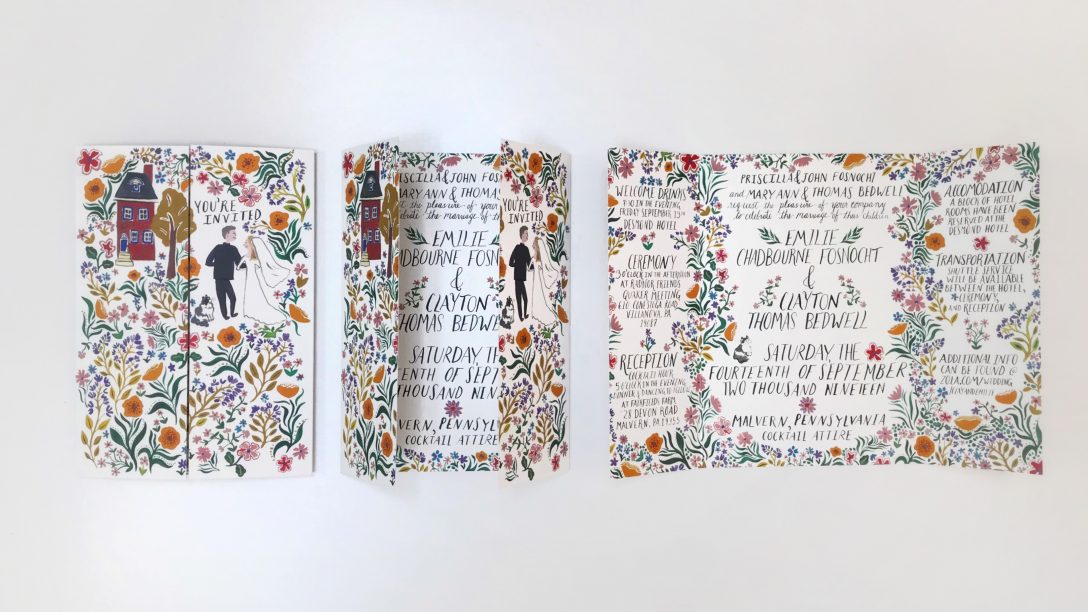 YOU'RE
INVITED
PRISCILLA & JOHN FOSN
MARY ANN & THOMAS
the pleasure of your comp
celebrate the marriage of t
EMILIE
ADBOURNE FOSN
&
CLAYTON
THOMAS BEDWE
SATURDAY, TH
TEENTH OF SEPT
THOUSAND NIN
LVERN, PENNSYLV
COCKTAIL ATTIRE
YOU'RE
INVITED
WELCOME DRINKS
IN THE EVENING
FRIDAY SEPTEMBER 13TH
DESMOND HOTEL
CEREMONY
3 O'CLOCK IN THE AFTERNOON
AT RADNOR FRIENDS
QUAKER MEETING
610 CONESTOGA ROAD,
VILLANOVA, PA
19087
RECEPTION
COCKTAIL HOUR
5 O'CLOCK IN THE EVENING
DINNER & DANCING TO FOLLOW
AT FAIRFIELD FARM,
28 DEVON ROAD
MALVERN, PA 19355
PRISCILLA & JOHN FOSNOCHT
and MARY ANN & THOMAS BEDWELL
request the pleasure of your company
to celebrate the marriage of their children
EMILIE
CHADBOURNE FOSNOCHT
&
CLAYTON
THOMAS BEDWELL
SATURDAY, THE
FOURTEENTH OF SEPTEMBER
TWO THOUSAND NINETEEN
MALVERN, PENNSYLVANIA
COCKTAIL ATTIRE
ACCOMODATION
A BLOCK OF HOTEL
ROOMS HAVE BEEN
RESERVED AT THE
DESMOND HOTEL
TRANSPORTATION
SHUTTLE SERVICE
WILL BE AVAILABLE
BETWEEN THE HOTEL,
CEREMONY,
AND RECEPTION
ADDITIONAL INFO
CAN BE FOUND @
ZOLA.COM/WEDDING